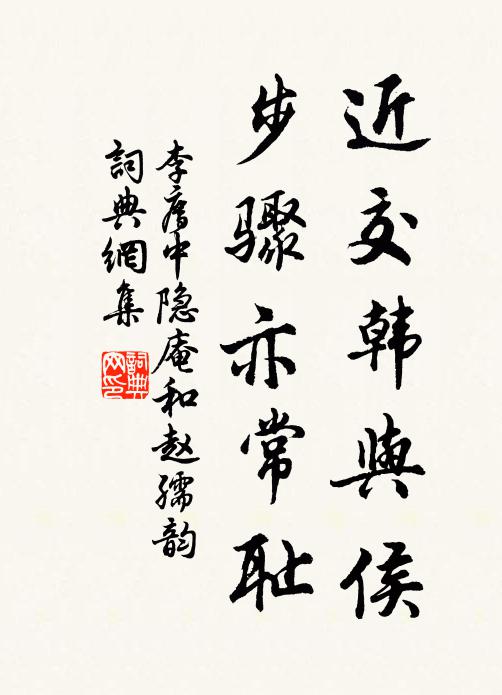 近交韩与侯
步骤亦常耻
李膺中隐庵和赵孺韵
詞典網集
詞典网印